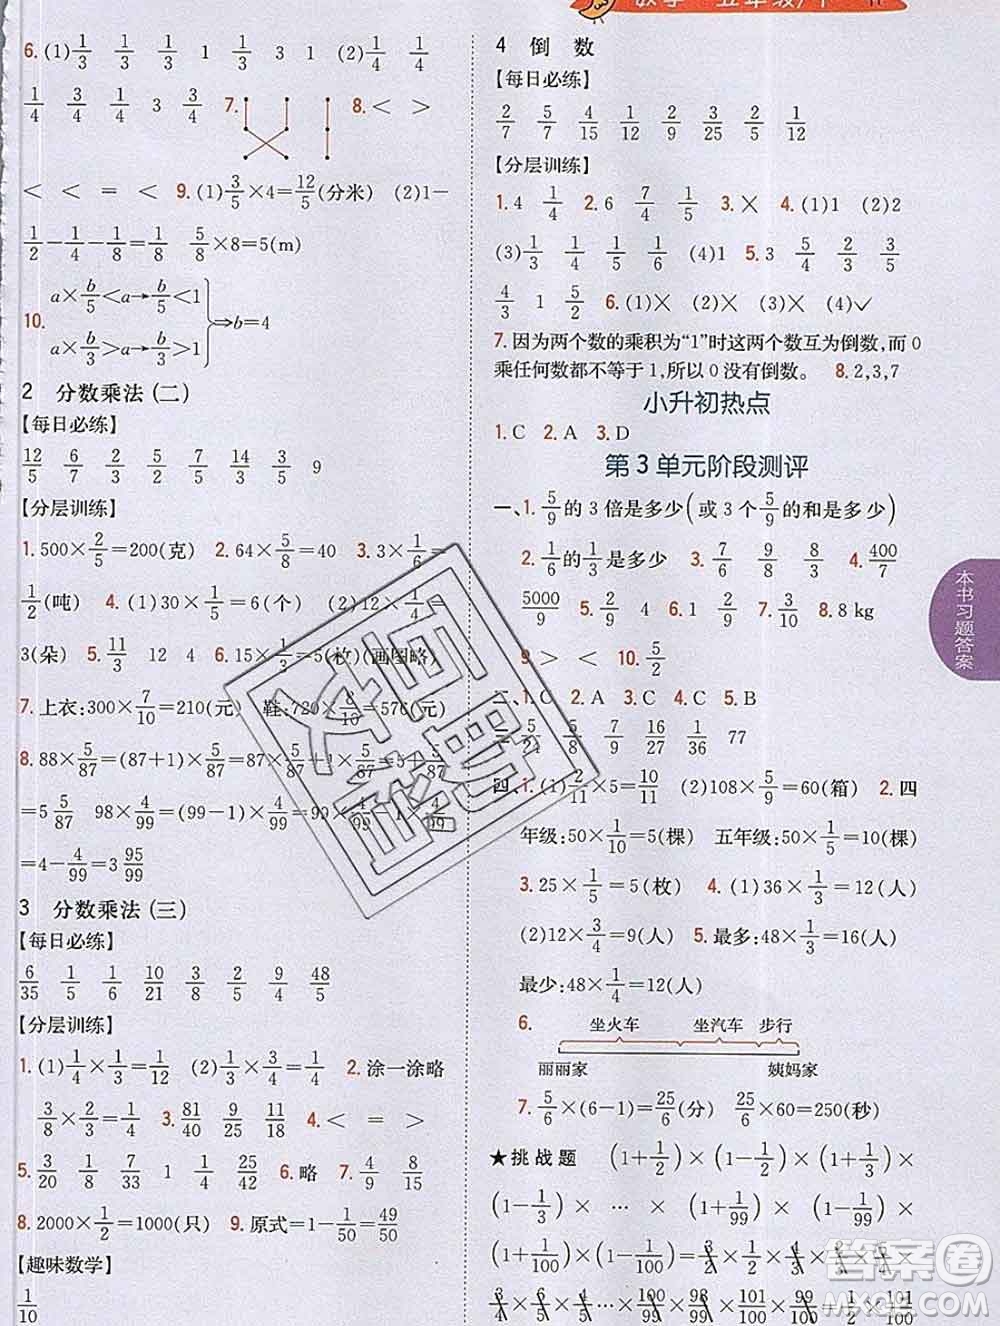 数学 五年级/下
6.(1)1/3 1/3 1 1/3 1 (2)1/4 1/4
1/4 3/4 1/4 3 3/4 7. 8.< >
< < = < 9.(1)3/5×4=12/5(分米) (2)1-
1/2-1/4-1/8=1/8 5/8×8=5(m)
10. a×b/5<a→b/5<1
a×b/3>a→b/3>1 ⇒b=4
2 分数乘法(二)
【每日必练】
12/5 6/7 2/3 3/2 4/5 3/5 9
【分层训练】
1.500×2/5=200(克) 2.64×5/8=40 3.3×1/6=
1/2(吨) 4.(1)30×1/5=6(个) (2)12×1/4=
3(朵) 5.11/3 12 4 6.15×1/3=5(枚)(画图略)
7.上衣:300×7/10=210(元) 鞋:720×8/10=576(元)
8.88×5/87=(87+1)×5/87=87×5/87+1×5/87
=5 5/87 98×4/99=(99-1)×4/99=99×4/99-1×4/99
=4-4/99=3 95/99
3 分数乘法(三)
【每日必练】
6/35 1/15 1/8 10/21 3/8 2/5 2/9 48/5
【分层训练】
1.(1)1/4×1/3=1/12 (2)1/4×3/5=3/20 2.涂一涂略
3/8×2/3=1/4 3.81/40 9/20 28/25 11/18 4.< = >
5.3/20 7/8 7/33 1 1/4 25/42 6.略 7.4/9 8/15
8.2000×1/2=1000(只) 9.原式=1-1/50=49/50
【趣味数学】
1/10
4 倒 数
【每日必练】
2/7 5/7 4/15 1/12 2/9 3/25 2/5 1/12
【分层训练】
1.4 1/4 2.6 7/4 1/5 3.× 4.(1)1 (2)2
(3)1/3 1/4 1/5 1/6 (4)1 5.3 5/4 2/3 6/5
4/3 1 5/2 6.(1)✓ (2)× (3)× (4)✓
7.因为两个数的乘积为“1”时这两个数互为倒数,而0
乘任何数都不等于1,所以0没有倒数。 8.2,3,7
小升初热点
1.C 2.A 3.D
第3单元阶段测评
一、1.5/9的3倍是多少(或3个5/9的和是多少)
2.1/6的1/3是多少 3.7/8 9/8 8/3 4.400/7
5000/9 5.2/9 4 6.1 7.3/10 8.8 kg
9.> < < 10.5/2
二、1.C 2.A 3.C 4.C 5.B
5/24 5/8 7/9 16/27 1/36 77
四、1.(1)2/11×5=10/11 (2)108×5/9=60(箱) 2.四
年级:50×1/10=5(棵) 五年级:50×1/5=10(棵)
3.25×1/5=5(枚) 4.(1)36×1/3=12(人)
(2)12×3/4=9(人) 5.最多:48×1/3=16(人)
最少:48×1/4=12(人)
6. 坐火车 坐汽车 步行
丽丽家 姨妈家
7.5/6×(6-1)=25/6(分) 25/6×60=250(秒)
★挑战题 (1+1/2)×(1-1/2)×(1+1/3)×
(1-1/3)× ⋯ ×(1+1/99)×(1-1/99)×
(1+1/100)×(1-1/100)=3/2×1/2×4/3×2/3×5/4×
3/4×6/5×4/5×⋯×100/99×98/99×101/100×99/100=1/2×101/100=101/200
本书习题答案
百思文鑫
答案圈
MXQE.COM